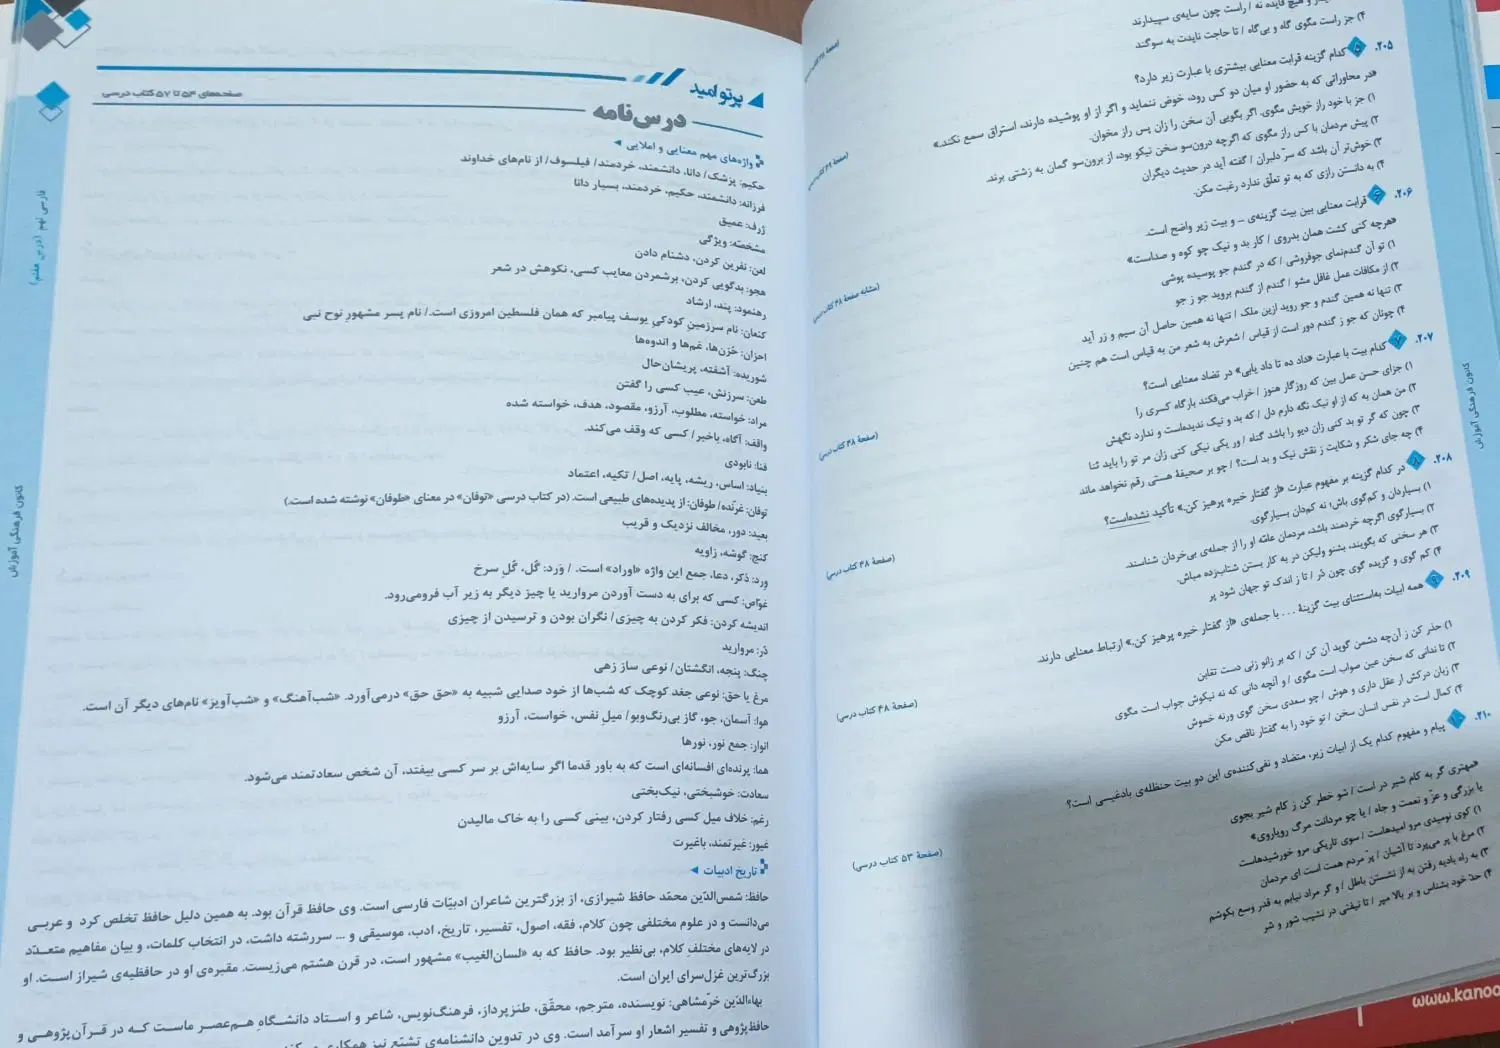 هیچ فایده نه / راست چون سایه‌ی سپیدارند
۴) جز راست مگوی گاه و بی‌گاه / تا حاجت نایدت به سوگند
۲۰۵. ۵ کدام گزینه قرابت معنایی بیشتری با عبارت زیر دارد؟
«در محاوراتی که به حضور او میان دو کس رود، خوض ننماید و اگر از او پوشیده دارند، استراق سمع نکند.»
۱) جز با خود راز خویش مگوی. اگر بگویی آن سخن را زان پس راز مخوان.
۲) پیش مردمان با کس راز مگوی که اگرچه درون‌سو سخن نیکو بود، از برون‌سو گمان به زشتی برند.
۳) خوش‌تر آن باشد که سرّ دلبران / گفته آید در حدیث دیگران
۴) به دانستن رازی که به تو تعلّق ندارد رغبت مکن.
۲۰۶. ۶ قرابت معنایی بین بیت گزینه‌ی ... و بیت زیر واضح است.
«هرچه کنی کشت همان بدروی / کار بد و نیک چو کوه و صداست»
۱) تو آن گندم‌نمای جوفروشی / که در گندم جو پوسیده پوشی
۲) از مکافات عمل غافل مشو / گندم از گندم بروید جو ز جو
۳) تنها نه همین گندم و جو روید ازین ملک / تنها نه همین حاصل آن سیم و زر آید
۴) چونان که جو ز گندم دور است از قیاس / شعرش به شعر من به قیاس است هم چنین
(مشابه صفحهٔ ۴۸ کتاب درسی)
۲۰۷. ۷ کدام بیت با عبارت «داد ده تا داد یابی» در تضاد معنایی است؟
۱) جزای حسن عمل بین که روزگار هنوز / خراب می‌فکند بارگاه کسری را
۲) من همان به که از او نیک نگه دارم دل / که بد و نیک ندیده‌است و ندارد نگهش
۳) چون که گر تو بد کنی زان دیو را باشد گناه / ور یکی نیکی کنی زان مر تو را باید ثنا
۴) چه جای شکر و شکایت ز نقش نیک و بد است؟ / چو بر صحیفهٔ هستی رقم نخواهد ماند
(صفحهٔ ۴۸ کتاب درسی)
۲۰۸. ۸ در کدام گزینه بر مفهوم عبارت «از گفتار خیره پرهیز کن.» تأکید نشده‌است؟
۱) بسیاردان و کم‌گوی باش؛ نه کم‌دان بسیارگوی.
۲) بسیارگوی اگرچه خردمند باشد، مردمان عامّه او را از جمله‌ی بی‌خردان شناسند.
۳) هر سخنی که بگویند، بشنو ولیکن در به کار بستن شتاب‌زده مباش.
۴) کم گوی و گزیده گوی چون دُر / تا ز اندک تو جهان شود پر
(صفحهٔ ۴۸ کتاب درسی)
۲۰۹. ۹ همه ابیات به‌استثنای بیت گزینهٔ ... با جمله‌ی «از گفتار خیره پرهیز کن.» ارتباط معنایی دارند.
۱) حذر کن ز آن‌چه دشمن گوید آن کن / که بر زانو زنی دست تغابن
۲) تا ندانی که سخن عین صواب است مگوی / و آنچه دانی که نه نیکوش جواب است مگوی
۳) زبان درکش ار عقل داری و هوش / چو سعدی سخن گوی ورنه خموش
۴) کمال است در نفس انسان سخن / تو خود را به گفتار ناقص مکن
(صفحهٔ ۴۸ کتاب درسی)
۲۱۰. ۱۰ پیام و مفهوم کدام یک از ابیات زیر، متضاد و نفی‌کننده‌ی این دو بیت حنظله‌ی بادغیسی است؟
«مهتری گر به کام شیر در است / شو خطر کن ز کام شیر بجوی
یا بزرگی و عزّ و نعمت و جاه / یا چو مردانت مرگ رویاروی»
۱) کوی نومیدی مرو امیدهاست / سوی تاریکی مرو خورشیدهاست
۲) مرغ با پر می‌پرد تا آشیان / پرّ مردم همت است ای مردمان
۳) به راه بادیه رفتن به از نشستن باطل / و گر مراد نیابم به قدر وسع بکوشم
۴) حدّ خود بشناس و بر بالا مپر / تا نیفتی در نشیب شور و شر
(صفحهٔ ۵۳ کتاب درسی)
کانون فرهنگی آموزش
www.kanoo
پرتو امید
صفحه‌های ۵۴ تا ۵۷ کتاب درسی
درس‌نامه
واژه‌های مهم معنایی و املایی
حکیم: پزشک/ دانا، دانشمند، خردمند/ فیلسوف/ از نام‌های خداوند
فرزانه: دانشمند، حکیم، خردمند، بسیار دانا
ژرف: عمیق
مشخصّه: ویژگی
لعن: نفرین کردن، دشنام دادن
هجو: بدگویی کردن، برشمردن معایب کسی، نکوهش در شعر
رهنمود: پند، ارشاد
کنعان: نام سرزمینِ کودکیِ یوسف پیامبر که همان فلسطین امروزی است./ نام پسر مشهورِ نوح نبی
احزان: حُزن‌ها، غم‌ها و اندوه‌ها
شوریده: آشفته، پریشان‌حال
طعن: سرزنش، عیب کسی را گفتن
مراد: خواسته، مطلوب، آرزو، مقصود، هدف، خواسته شده
واقف: آگاه، باخبر/ کسی که وقف می‌کند.
فنا: نابودی
بنیاد: اساس، ریشه، پایه، اصل/ تکیه، اعتماد
توفان: غرّنده/ طوفان: از پدیده‌های طبیعی است. (در کتاب درسی «توفان» در معنای «طوفان» نوشته شده است.)
بعید: دور، مخالف نزدیک و قریب
کنج: گوشه، زاویه
وِرد: ذکر، دعا، جمع این واژه «اوراد» است. / وَرد: گُل، گُلِ سرخ
غوّاص: کسی که برای به دست آوردن مروارید یا چیز دیگر به زیر آب فرومی‌رود.
اندیشه کردن: فکر کردن به چیزی/ نگران بودن و ترسیدن از چیزی
دُر: مروارید
چنگ: پنجه، انگشتان/ نوعی ساز زهی
مرغ یا حق: نوعی جغد کوچک که شب‌ها از خود صدایی شبیه به «حق حق» درمی‌آورد. «شب‌آهنگ» و «شب‌آویز» نام‌های دیگر آن است.
هوا: آسمان، جو، گاز بی‌رنگ‌وبو/ میلِ نفس، خواست، آرزو
انوار: جمع نور، نورها
هما: پرنده‌ای افسانه‌ای است که به باور قدما اگر سایه‌اش بر سر کسی بیفتد، آن شخص سعادتمند می‌شود.
سعادت: خوشبختی، نیک‌بختی
رغم: خلاف میل کسی رفتار کردن، بینی کسی را به خاک مالیدن
غیور: غیرتمند، باغیرت
تاریخ ادبیات
حافظ: شمس‌الدّین محمّد حافظ شیرازی، از بزرگترین شاعران ادبیّات فارسی است. وی حافظ قرآن بود، به همین دلیل حافظ تخلص کرد و عربی
می‌دانست و در علوم مختلفی چون کلام، فقه، اصول، تفسیر، تاریخ، ادب، موسیقی و ... سررشته داشت، در انتخاب کلمات، و بیان مفاهیم متعـدّد
در لایه‌های مختلفِ کلام، بی‌نظیر بود. حافظ که به «لسان‌الغیب» مشهور است، در قرن هشتم می‌زیست. مقبره‌ی او در حافظیه‌ی شیراز است. او
بزرگ‌ترین غزل‌سرای ایران است.
بهاءالدّین خرّمشاهی: نویسنده، مترجم، محقّق، طنزپرداز، فرهنگ‌نویس، شاعر و استاد دانشگاهِ هم‌عصر ماست که در قرآن‌پژوهی و
حافظ‌پژوهی و تفسیر اشعار او سرآمد است. وی در تدوین دانشنامه‌ی تشیّع نیز همکاری
فارسی نهم (درس هفتم)
کانون فرهنگی آموزش